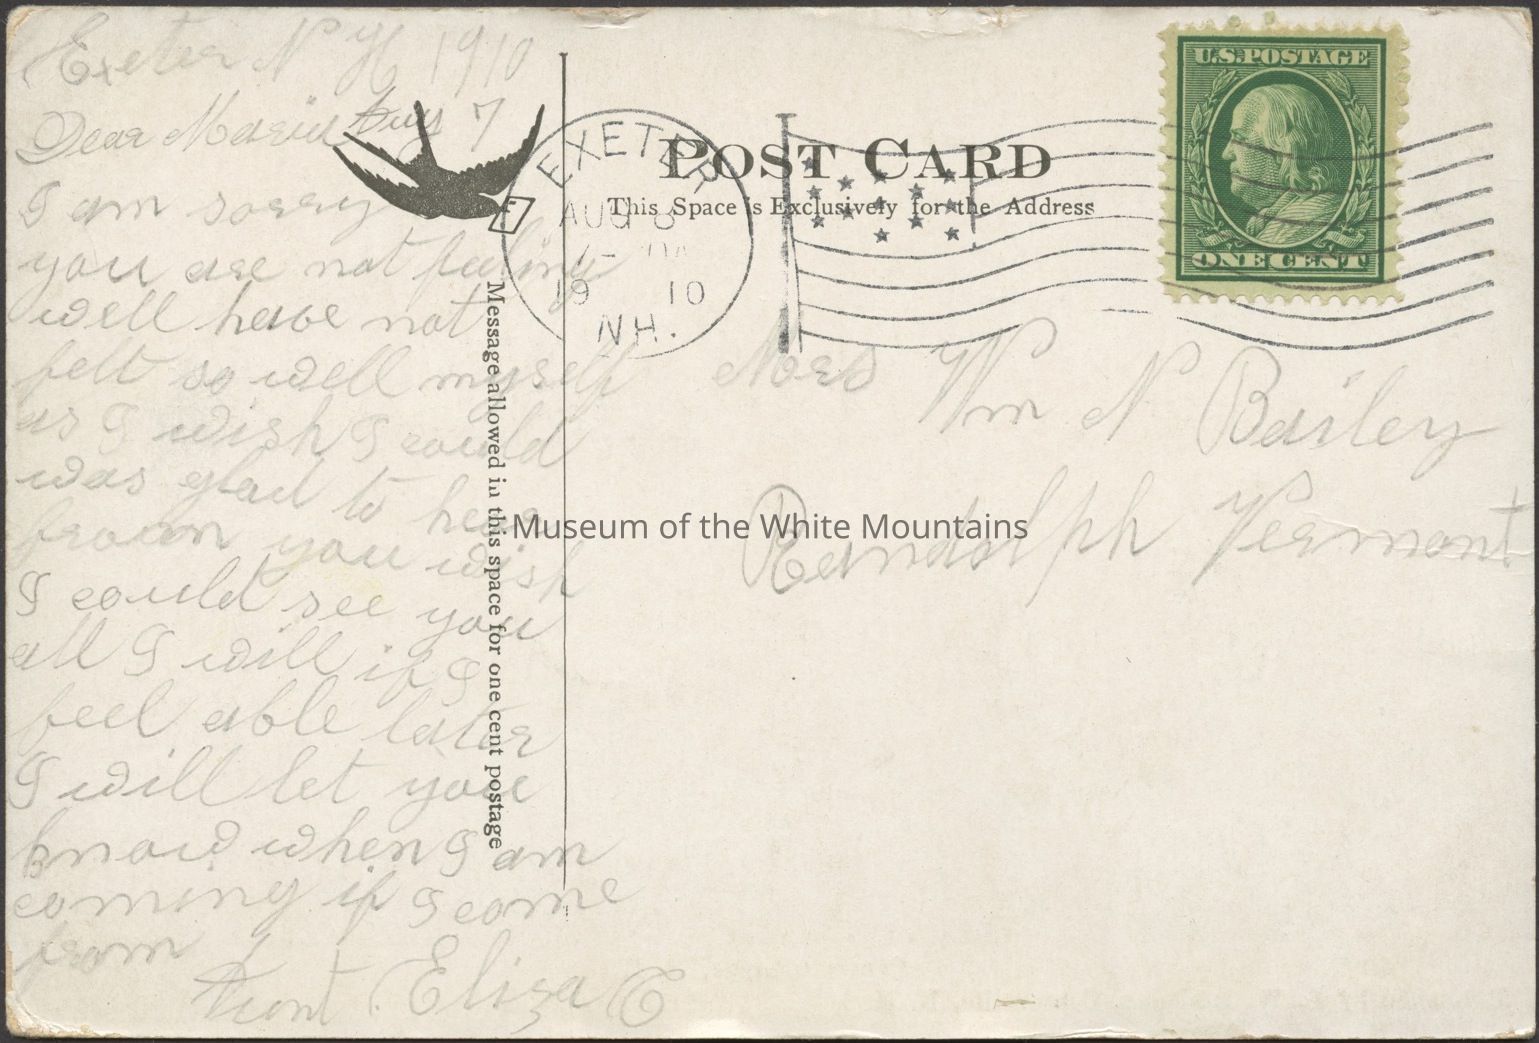 Exeter N H 1910
Aug 7
Dear Marion
I am sorry
you are not feeling
well have not
felt so well myself
as I wish I could
was glad to hear
from you wish
I could see you
all I will if I
feel able later
I will let you
know when I am
coming if I come
from
Aunt Eliza C
Message allowed in this space for one cent postage
POST CARD
This Space is Exclusively for the Address
EXETER
AUG 8
19 10
N.H.
U.S. POSTAGE
ONE CENT
Mrs Wm N Bailey
Randolph Vermont
Museum of the White Mountains